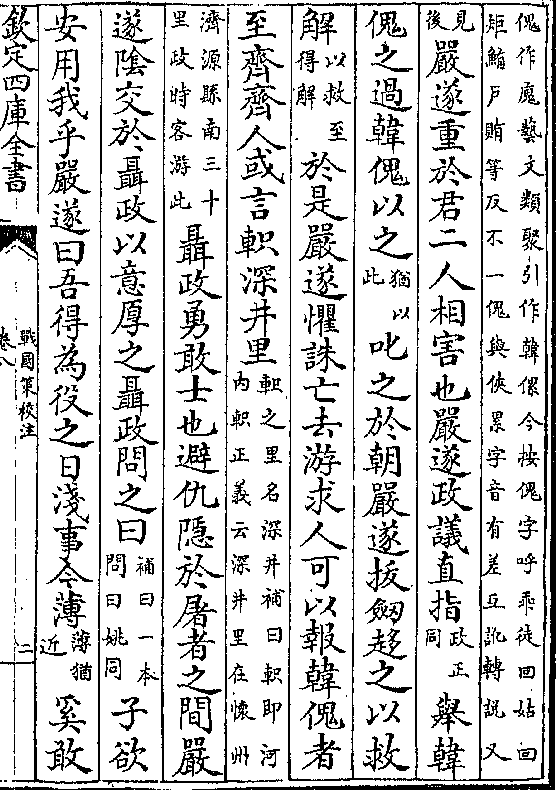 傀作廆藝文類聚引作韓傫今按傀字呼乖徒回姑回
矩鮪戸賄等反不一傀與俠累字音有差互訛轉説又
見後嚴遂重於君二人相害也嚴遂政議直指政正同舉韓
傀之過韓傀以之猶以此叱之於朝嚴遂拔劔趍之以救
解以救至得解於是嚴遂懼誅亡去游求人可以報韓傀者
至齊齊人或言軹深井里軹之里名深井補曰軹即河内軹正義云深井里在懷州
濟源縣南三十里政時客游此聶政勇敢士也避仇隠於屠者之間嚴
遂隂交於聶政以意厚之聶政問之曰補曰一本問曰姚同子欲
安用我乎嚴遂曰吾得為役之日淺事今薄薄猶近奚敢
欽定四庫全書
戰國策校注
卷八
二